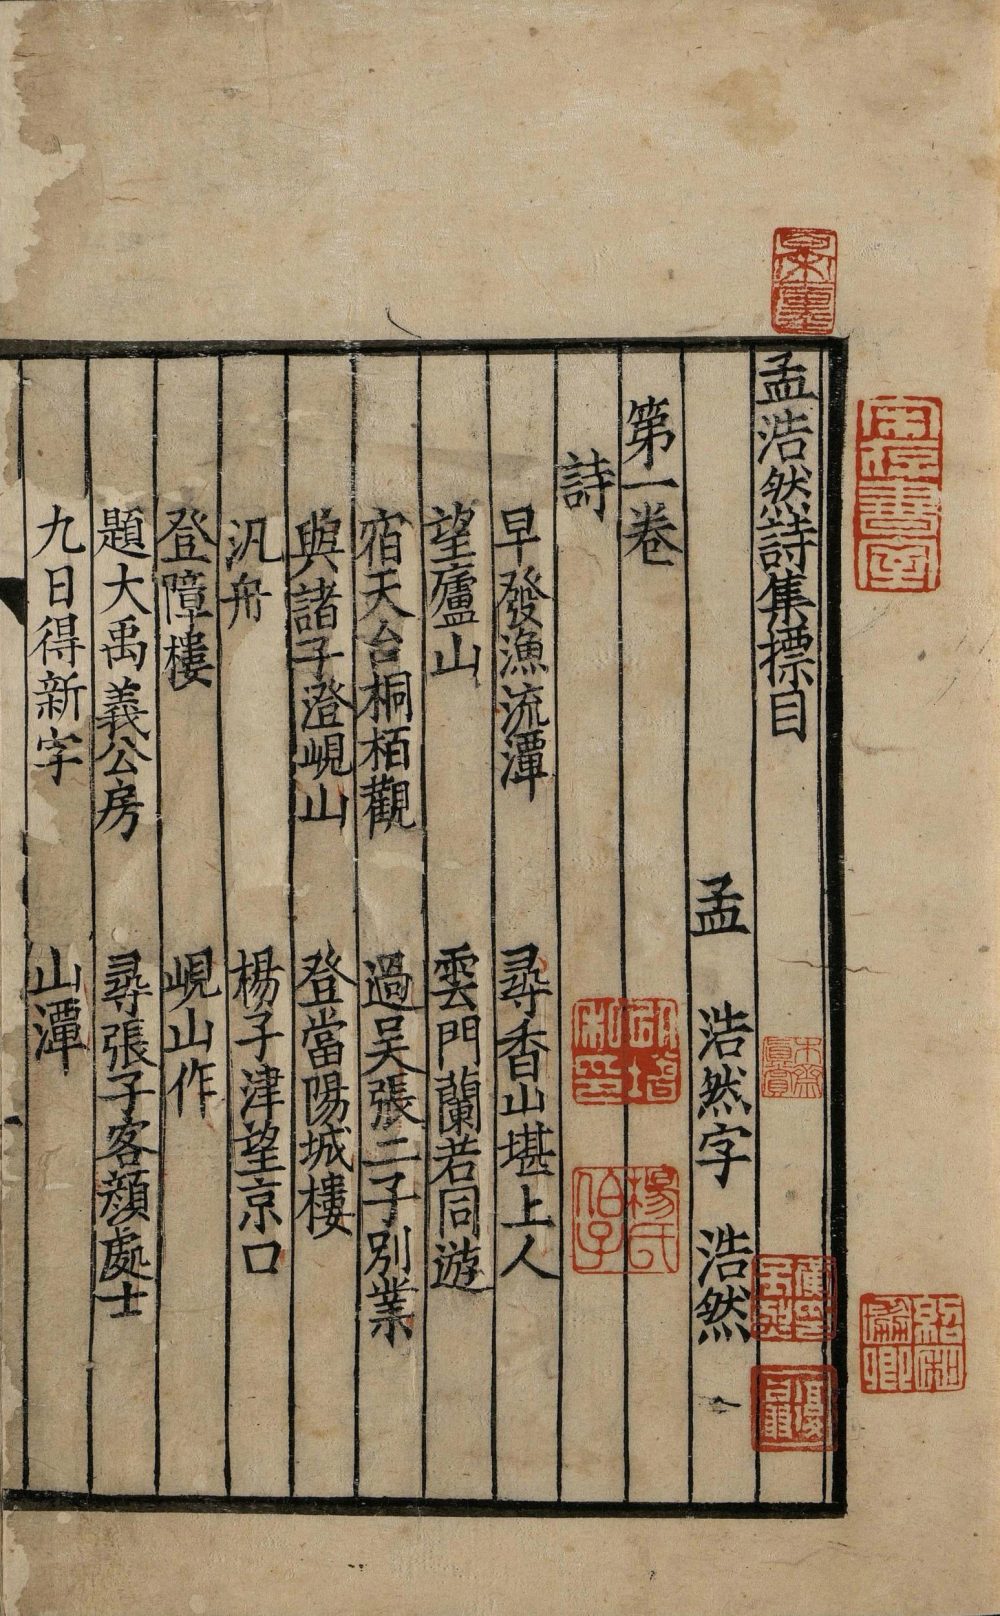 孟浩然詩集摽目
孟 浩然字 浩然
第一卷
詩
早發漁浦潭 尋香山堪上人
望廬山 雲門蘭若同遊
宿天台桐栢觀 過吴張二子别業
與諸子澄峴山 登當陽城樓
汎舟 楊子津望京口
登障樓 峴山作
題大禹義公房 尋張子客顔處士
九日得新字 山潭
宋存書室
楊氏伯子